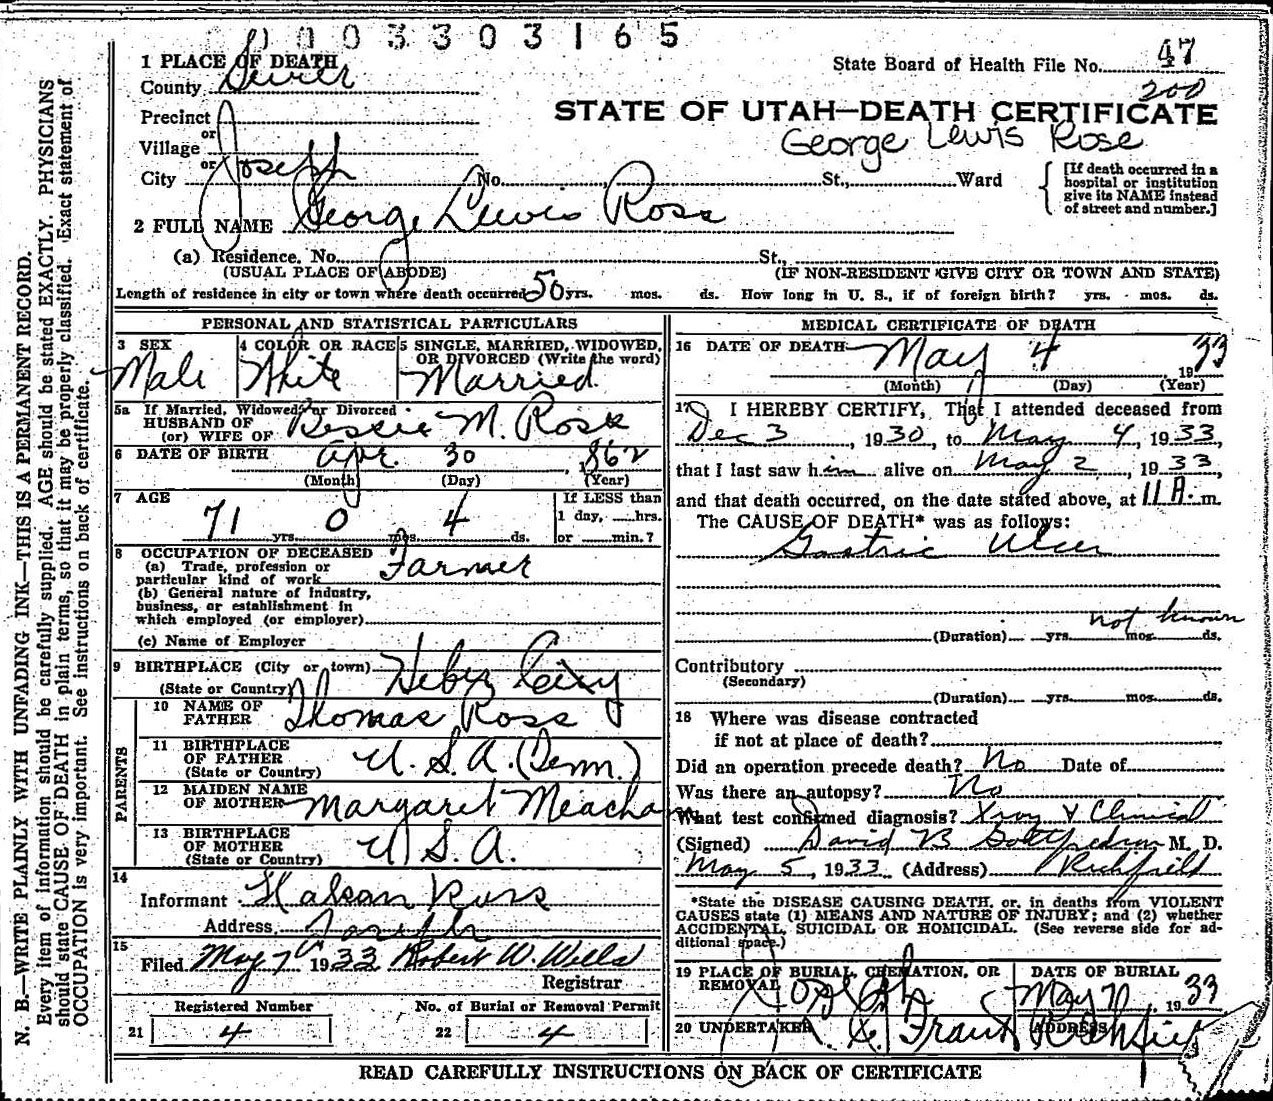 0003303165
1 PLACE OF DEATH
County Sevier
State Board of Health File No. 47
200
STATE OF UTAH—DEATH CERTIFICATE
George Lewis Rose
Precinct
or
Village
or
City Joseph No. St., Ward
[If death occurred in a
hospital or institution
give its NAME instead
of street and number.]
2 FULL NAME George Lewis Ross
(a) Residence. No. St.,
(USUAL PLACE OF ABODE) (IF NON-RESIDENT GIVE CITY OR TOWN AND STATE)
Length of residence in city or town where death occurred 50 yrs. mos. ds. How long in U. S., if of foreign birth? yrs. mos. ds.
PERSONAL AND STATISTICAL PARTICULARS
3 SEX 4 COLOR OR RACE 5 SINGLE, MARRIED, WIDOWED,
OR DIVORCED (Write the word)
Male White Married
5a If Married, Widowed, or Divorced
HUSBAND OF
(or) WIFE OF Bessie M. Ross
6 DATE OF BIRTH Apr. 30, 1862
(Month) (Day) (Year)
7 AGE If LESS than
1 day, hrs.
71 yrs. 0 mos. 4 ds. or min.?
8 OCCUPATION OF DECEASED
(a) Trade, profession or
particular kind of work Farmer
(b) General nature of industry,
business, or establishment in
which employed (or employer)
(c) Name of Employer
9 BIRTHPLACE (City or town) Heber City
(State or Country)
PARENTS
10 NAME OF
FATHER Thomas Ross
11 BIRTHPLACE
OF FATHER
(State or Country) U. S. A. (Tenn.)
12 MAIDEN NAME
OF MOTHER Margaret Meacham
13 BIRTHPLACE
OF MOTHER
(State or Country) U. S. A.
14
Informant Ross
Address Joseph
15
Filed May 7th 1933 Robert W. Wells
Registrar
Registered Number No. of Burial or Removal Permit
21 4 22 4
MEDICAL CERTIFICATE OF DEATH
16 DATE OF DEATH May 4 1933
(Month) (Day) (Year)
17 I HEREBY CERTIFY, That I attended deceased from
Dec 3, 1930, to May 4, 1933,
that I last saw him alive on May 2, 1933,
and that death occurred, on the date stated above, at 11 A. m.
The CAUSE OF DEATH* was as follows:
Gastric Ulcer
not known
(Duration) yrs. mos. ds.
Contributory
(Secondary)
(Duration) yrs. mos. ds.
18 Where was disease contracted
if not at place of death?
Did an operation precede death? No Date of
Was there an autopsy? No
What test confirmed diagnosis? Xray & Clinical
(Signed) David B Gottfredson M. D.
May 5, 1933 (Address) Richfield
*State the DISEASE CAUSING DEATH, or, in deaths from VIOLENT
CAUSES state (1) MEANS AND NATURE OF INJURY; and (2) whether
ACCIDENTAL, SUICIDAL OR HOMICIDAL. (See reverse side for ad-
ditional space.)
19 PLACE OF BURIAL, CREMATION, OR
REMOVAL Joseph
DATE OF BURIAL
May 7, 1933
20 UNDERTAKER ADDRESS
Richfield
READ CAREFULLY INSTRUCTIONS ON BACK OF CERTIFICATE
N. B.—WRITE PLAINLY WITH UNFADING INK—THIS IS A PERMANENT RECORD.
Every item of information should be carefully supplied. AGE should be stated EXACTLY. PHYSICIANS
should state CAUSE OF DEATH in plain terms, so that it may be properly classified. Exact statement of
OCCUPATION is very important. See instructions on back of certificate.